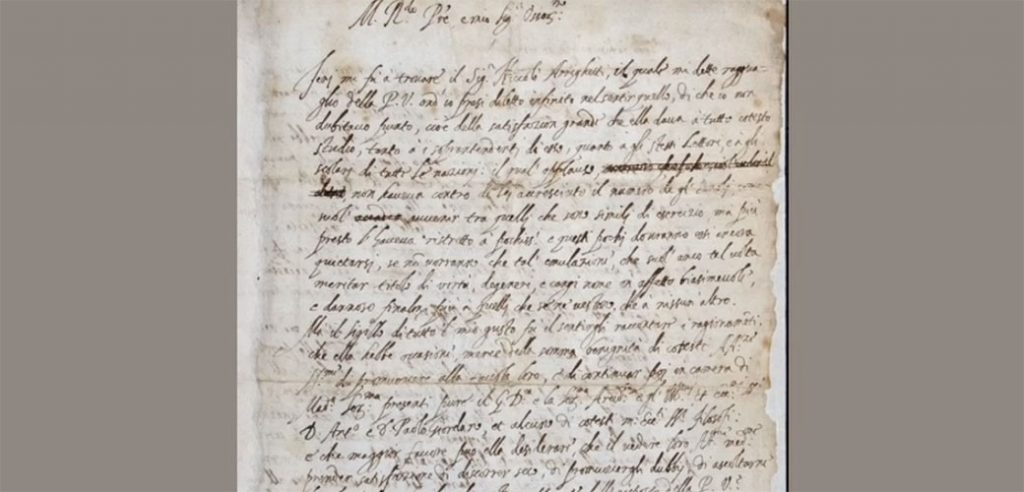 M. R.do P.re e mio Sig.r Oss.mo
Ieri mi fu a trovare il Sig.r Niccolò Arrighetti, il quale mi dette raggua-
glio della P. V. ond'io presi diletto infinito nel sentir quello, di che io non
dubitavo punto, cioè della satisfazion grande che ella dava a tutto cotesto
studio, tanto a i sopraintendenti di esso, quanto a gli stessi Lettori, e a gli
scolari di tutte le nazioni: il qual applauso
non haveva contro di lei accresciuto il numero de gli come
suol avvenir tra quelli che sono simili di esercizio, ma più
presto l'haveva ristretto a pochiss.i: e questi pochi dovranno essi ancora
quietarsi, se non vorranno che tale emulazione, che suol anco tal volta
meritar titolo di virtù, degeneri, e cangi nome in affetto biasimevole,
e dannoso finalmente più a quelli che se ne vestono, che a nissun altro.
Ma il sigillo di tutto il mio gusto fu il sentirgli raccontare i ragionamenti,
che ella hebbe occasione, mercè della somma benignità di coteste AA.ze
Ser.me di promuovere alla tavola loro, e di continuar poi in camera di
Mad.ma Ser.ma presenti pure il G. D. e la Ser.ma Arcid.a e gl'Ill.mi et Ecc.mi
D. Ant.o e D. Paolo Giordano, et alcuni di cotesti molto Ecc. filosofi.
E che maggior favore può ella desiderare, che il vedere loro Alt.e med.me
prender satisfazione di discorrer seco, di promuovergli dubbi, di ascoltarne